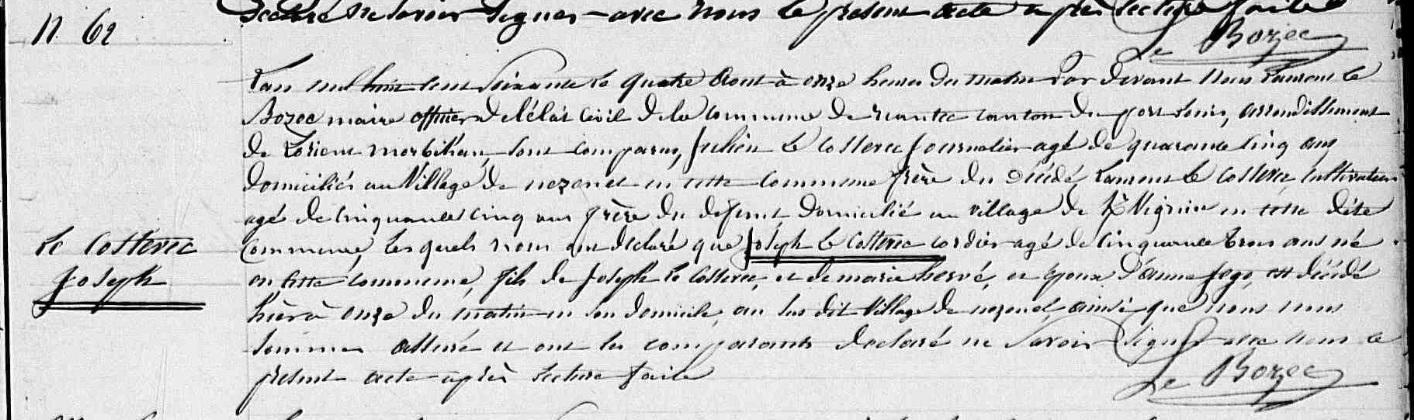 déclaré ne savoir signer avec nous le présent acte après lecture faite
N. 62
Le Bozec
L'an mil huit cent soixante le quatre Aout à onze heures du matin Par devant Nous Laurent le
Bozec maire officier de l'état civil de la Commune de riantec canton de port Louis, arrondissement
de Lorient morbihan, sont comparus, Julien Le Costevec Journalier agé de quarante cinq ans
domicilié au Village de nezenel en cette Commune frère du décédé, Laurent le Costevec Cultivateur
agé de Cinquante cinq ans frère du defunt domicilié au village de en cette dite
Commune, lesquels nous ont declaré que Joseph Le Costevec cordier agé de Cinquante trois ans né
en cette Commune, fils de Joseph Le Costevec, et de marie hervé, et Epoux d'anne Jego, est décédé
Le Costevec
Joseph
hier à onze du matin en son domicile, au sus dit Village de nezenel ainsi que nous nous
sommes assuré et ont les comparants declaré ne savoir Signer avec nous le
présent acte après lecture faite
Le Bozec